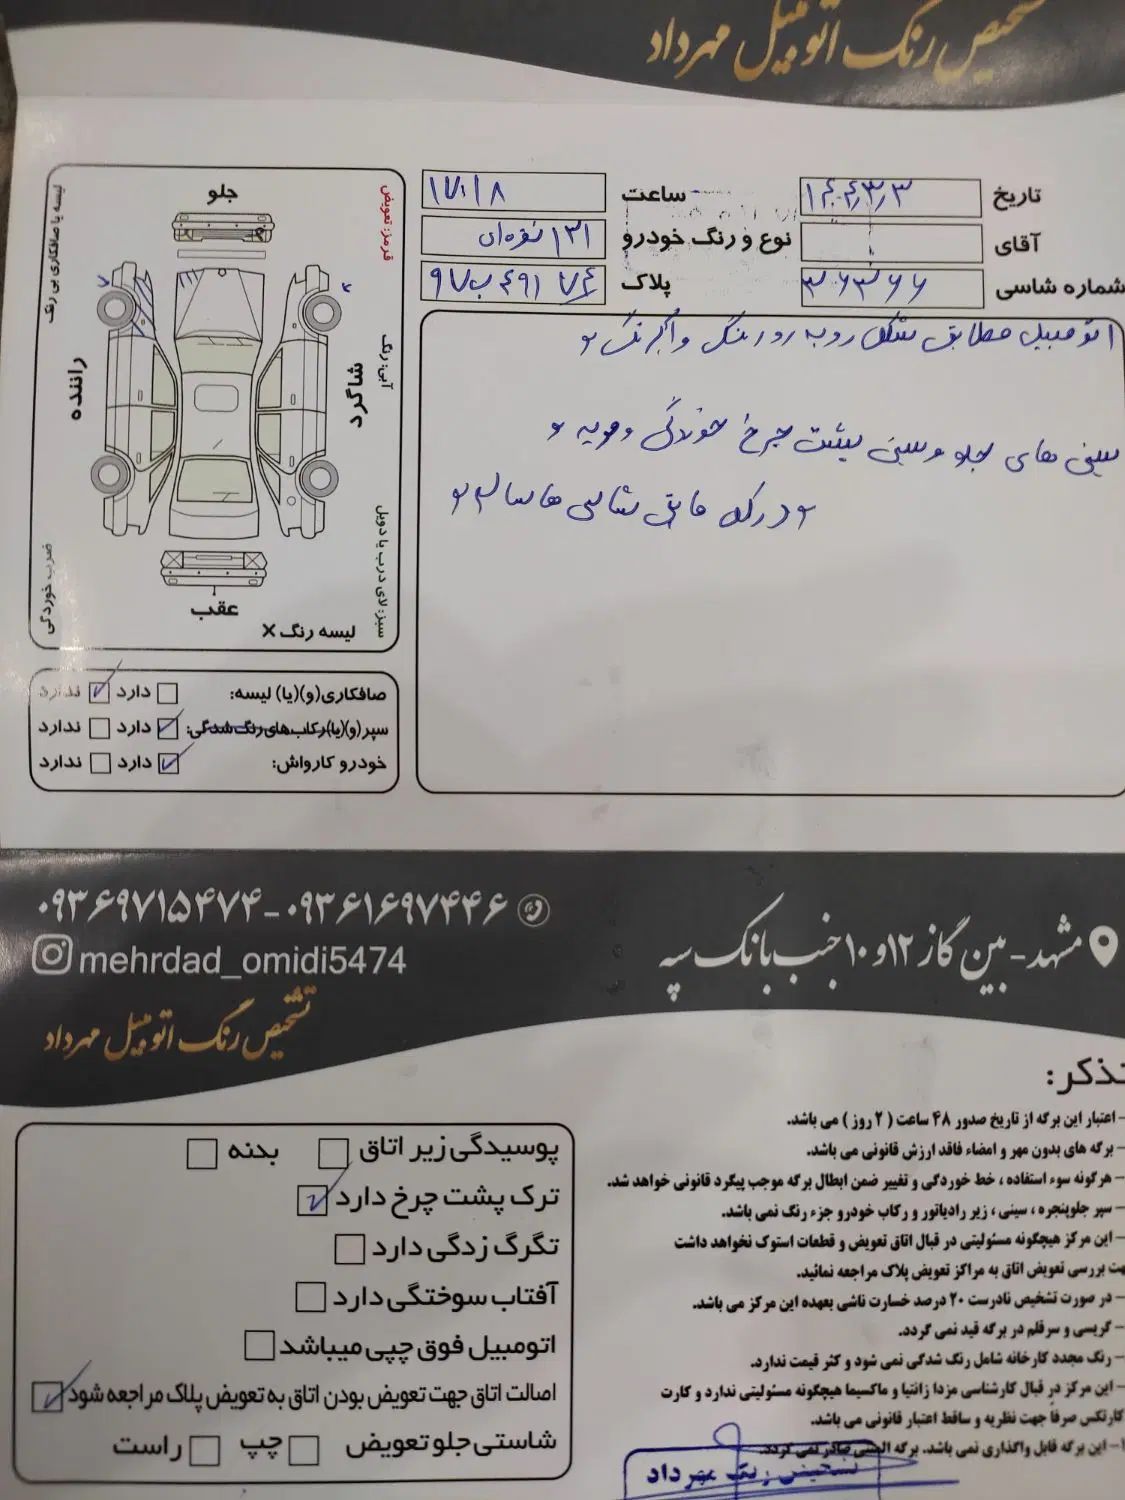 تشخیص رنگ اتومبیل مهرداد
تاریخ ۱۴۰۴/۳/۳
ساعت ۱۷:۱۸
آقای
نوع و رنگ خودرو ۱۳۱ نقره‌ای
شماره شاسی ۳۶۳۶۶
پلاک ۷۴ ۴۹۱ب۹۷
اتومبیل مطابق شکل روبه رو رنگ و آبرنگ و
سینی های جلو و سینی پشت چرخ خوردگی و
و ترک مابقی شاسی ها سالم
جلو
عقب
راننده
شاگرد
قرمز: تعویض
آبی: رنگ
سبز: لای درب یا دوبل
لیسه یا صافکاری بی رنگ
ضرب خوردگی
لیسه رنگ ×
صافکاری(و)(یا) لیسه: دارد ندارد
سپر(و)(یا)رکاب‌های‌رنگ‌شدگی: دارد ندارد
خودرو کارواش: دارد ندارد
۰۹۳۶۹۷۱۵۴۷۴-۰۹۳۶۱۶۹۷۴۴۶
مشهد - بین گاز ۱۲ و ۱۰ جنب بانک سپه
mehrdad_omidi5474
تشخیص رنگ اتومبیل مهرداد
پوسیدگی زیر اتاق بدنه
ترک پشت چرخ دارد
تگرگ زدگی دارد
آفتاب سوختگی دارد
اتومبیل فوق چپی میباشد
اصالت اتاق جهت تعویض بودن اتاق به تعویض پلاک مراجعه شود
شاستی جلو تعویض چپ راست
تذکر:
- اعتبار این برگه از تاریخ صدور ۴۸ ساعت ( ۲ روز ) می باشد.
- برگه های بدون مهر و امضاء فاقد ارزش قانونی می باشد.
- هرگونه سوء استفاده ، خط خوردگی و تغییر ضمن ابطال برگه موجب پیگرد قانونی خواهد شد.
- سپر جلوپنجره ، سینی ، زیر رادیاتور و رکاب خودرو جزء رنگ نمی باشد.
- این مرکز هیچگونه مسئولیتی در قبال اتاق تعویض و قطعات استوک نخواهد داشت
جهت بررسی تعویض اتاق به مراکز تعویض پلاک مراجعه نمائید.
- در صورت تشخیص نادرست ۲۰ درصد خسارت ناشی بعهده این مرکز می باشد.
- گریسی و سرقلم در برگه قید نمی گردد.
- رنگ مجدد کارخانه شامل رنگ شدگی نمی شود و کثر قیمت ندارد.
- این مرکز در قبال کارشناسی مزدا زانتیا و ماکسیما هیچگونه مسئولیتی ندارد و کارت
کارتکس صرفاً جهت نظریه و ساقط اعتبار قانونی می باشد.
- این برگه قابل واگذاری نمی باشد. برگه المثنی صادر نمی گردد.
تشخیص رنگ مهرداد